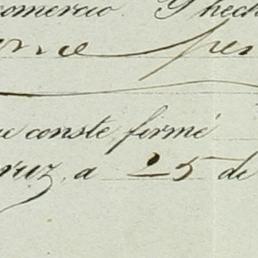 comercio. Y hech
rne per
ue conste firmé
ruz, a 25 de